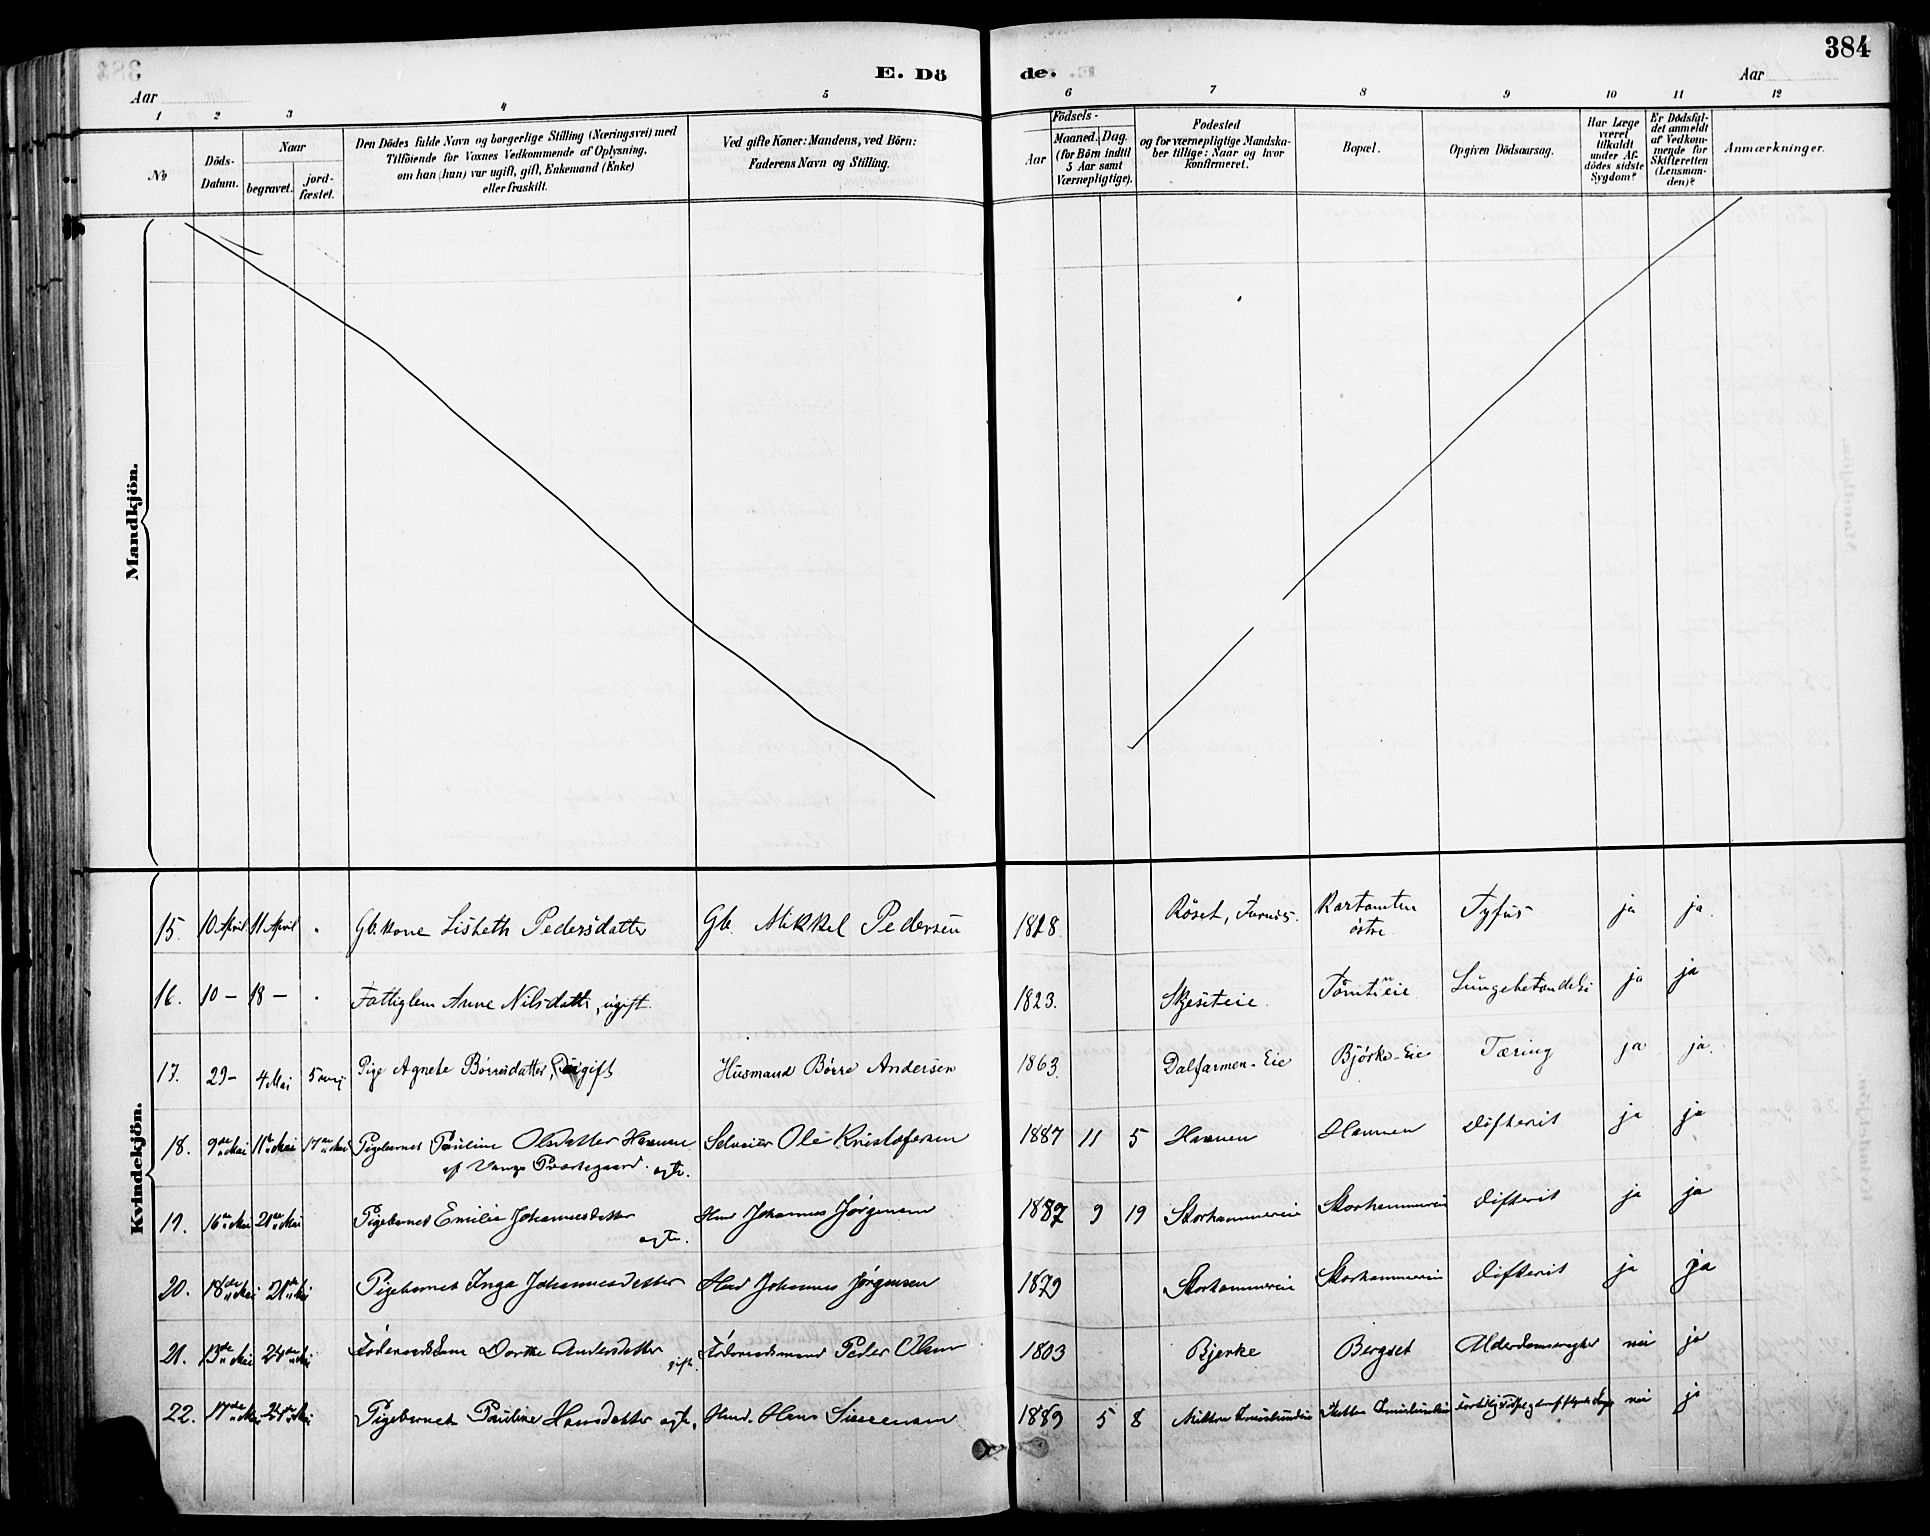 384
E. Dö
de.
Aar
Aar
1 2 3 4 5 6 7 8 9 10 11 12
No
Döds-
Datum.
Naar
begravet.
jord-
fæstet.
Den Dödes fulde Navn og borgerlige Stilling (Næringsvei) med
Tilföiende for Voxnes Vedkommende af Oplysning,
om han (hun) var ugift, gift, Enkemand (Enke)
eller fraskilt.
Ved gifte Koner: Mandens, ved Börn:
Faderens Navn og Stilling.
Födsels-
Aar
Maaned. Dag.
(for Börn indtil
5 Aar samt
Værnepligtige).
Födested
og for værnepligtige Mandska-
ber tillige: Naar og hvor
konfirmeret.
Bopæl.
Opgiven Dödsaarsag.
Har Læge
været
tilkaldt
under Af-
dödes sidste
Sygdom?
Er Dödsfal-
det anmeldt
af Vedkom-
mende for
Skifteretten
(Lensman-
den)?
Anmærkninger.
Mandkjön.
Kvindekjön.
15. 10 April 11 April Gbkone Lisbeth Pedersdatter Gb. Mikkel Pedersen 1828. Röset, Furnes. Kartomten Tyfus ja ja.
østre
16. 10 – 18 – Fattiglem Anne Nilsdatt, ugift. 1823. Skjeseteie. ja ja
17. 29 – 4 Mai 5 Pige Agnete Børresdatter, ugift Husmand Børre Andersen 1863. Dalfarmen-Eie Bjørke-Eie Tæring ja ja.
18. 9de Mai 11te Mai 17de Mai Pigebarnet Pauline Olsdatter Selveier Ole Kristofersen 1887 11 5 difterit ja ja
af Vangs Præstegaard. ægte.
19. 16de Mai 21de Mai Pigebarnet Emilie Johannesdatter Hmd Johannes Jørgensen 1887 9 19 Storhammereie Storhammereie difterit ja ja
ægte.
20. 18de Mai 21de Mai Pigebarnet Inga Johannesdatter Hmd Johannes Jørgensen 1879 Storhammereie Storhammereie difterit ja ja
21. 13de Mai 24de Mai Dorthe Andersdatter Föderaadsmand Peder Olsen 1803 Bjerke Bergset nei ja
gift.
22. 17de Mai 24de Mai Pigebarnet Pauline Hansdatter ægte, Hmd. Hans 1889 5 8 nei ja